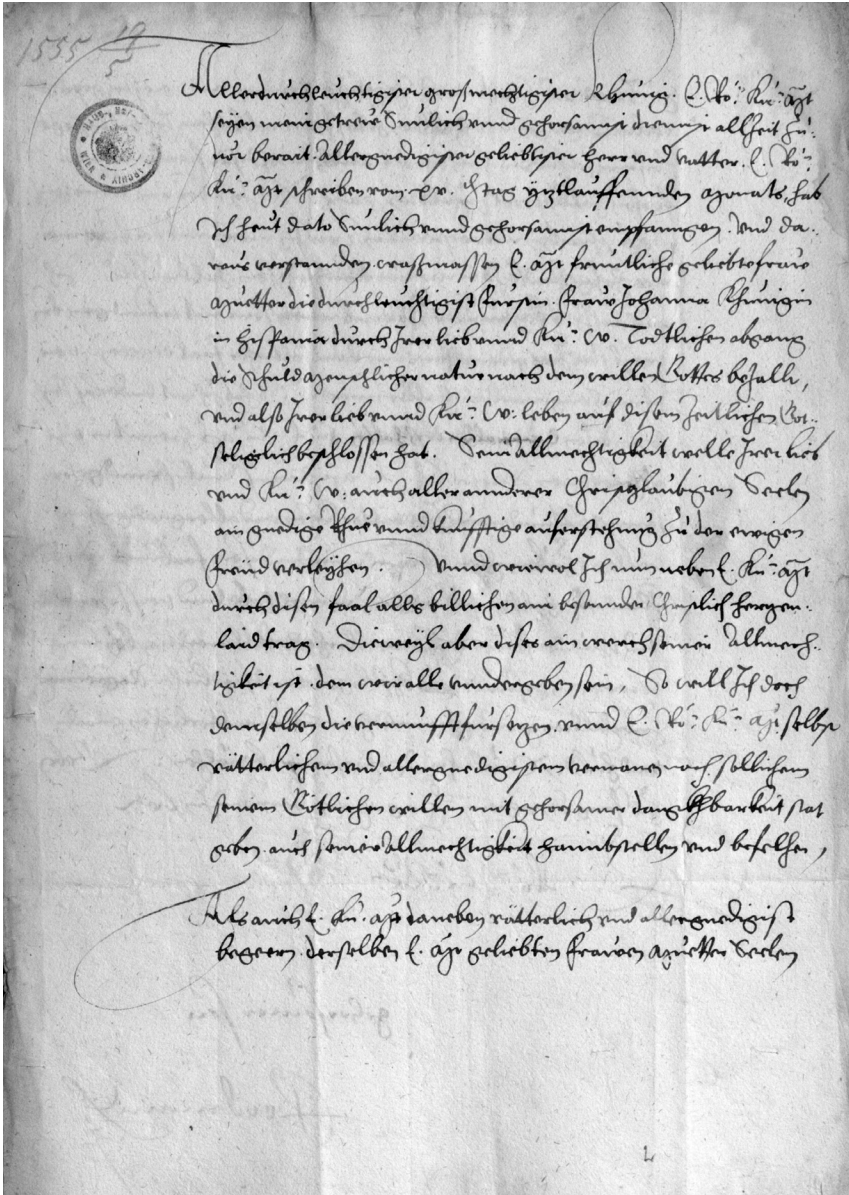 1555 19/5
Allerdurchleuchtigister großmechtigister Khunig. E. Rö: Kü: Mt
seyen mein getrew Sunlich unnd gehorsamist diennst allzeit zu-
vor berait. Allergnedigister geliebtister Herr und vatter. E. Rö:
Kü: Mt schreiben vom xv. tag yztlauffennden Monats, hab
Ich heut dato Sunlich unnd gehorsamist empfanngen. Und da-
raus verstannden, waßmassen E. Mt freuntliche geliebte fraw
Muetter die durchleuchtigist Fürstin. Fraw Johanna Khunigin
in Hispania durch Irer lieb unnd Kü: W. Todtlichen abgang
die schuld Menschlicher natur nach dem willen Gottes bezallt,
und also Irer lieb unnd Kü: W: leben auf disem zeitlichen Got-
seliglich beschlossen hat. Sein Allmechtigkeit welle Irer lieb
und Kü: W: auch aller annderer Christglaubigen Seelen
ain gnedige Rhue unnd künfftige auferstehung zu der ewigen
freud verleyhen. Unnd wiewol Ich nun neben E. Kü: Mt
durch disen faal alls billichen ain besonder Christlich hertzen-
laid trag. Dieweyl aber dises ain werch seiner Allmech-
tigkeit ist, dem wir alle unndergeben sein, So will Ich doch
demselben die vernunfft fursetzen, unnd E. Rö: Kü: Mt selbst
vätterlichem und allergnedigistem vermanen nach, sollichem
seinem Götlichen willen mit gehorsamer danngkhbarkeit stat
geben, auch seiner Allmechtigkeit haimbstellen und befelhen,
Als auch E. Kü: Mt daneben vätterlich und allergnedigist
begeern, derselben E. Mt geliebten Frawen Muetter Seelen